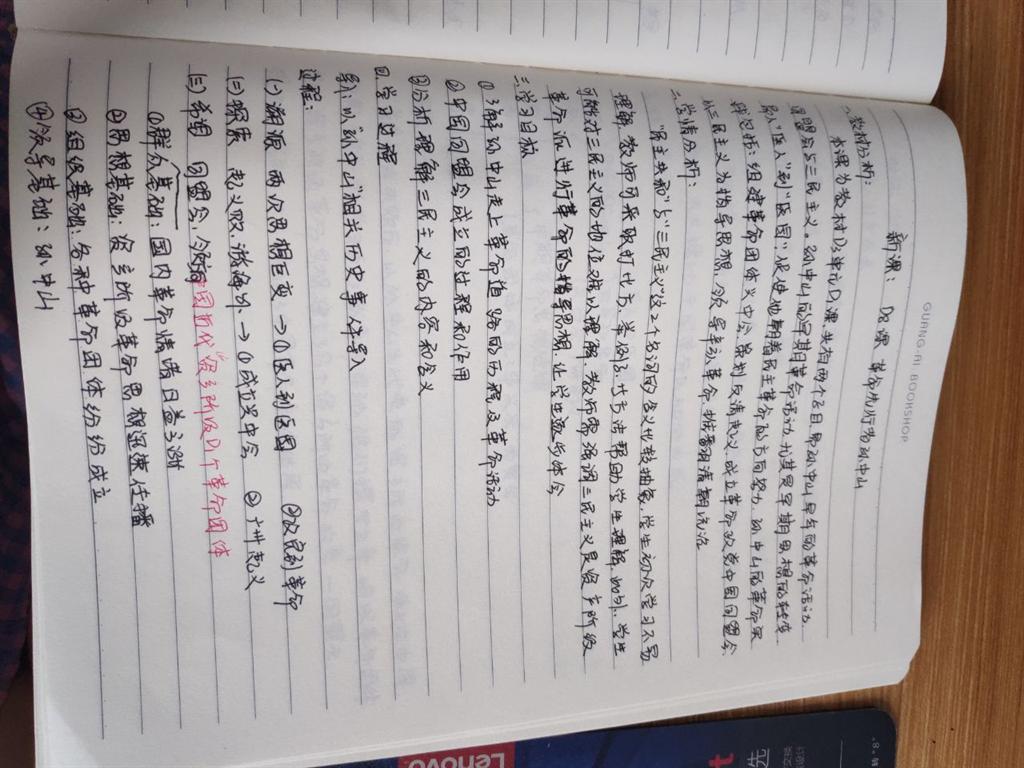 GUANG-AI BOOKSHOP
新课： D8课 革命先行者孙中山
一、教材分析：
本课为教材D3单元D1课，共有两个子目，即孙中山早年的革命活动
同盟会与三民主义。孙中山的早期革命活动尤其是早期思想的转变
从"医人"到"医国"，促使他朝着民主革命的方向努力，孙中山的革命实
践包括：组建革命团体兴中会，策划反清起义，成立革命政党中国同盟会
以三民主义为指导思想，领导辛亥革命，推翻清朝统治
二、学情分析：
"民主共和"与"三民主义"这2个名词的含义比较抽象，学生初次学习不易
理解，教师可采取打比方、举例子等方法帮助学生理解，此外，学生
可能对三民主义的地位难以理解，教师需强调三民主义是资产阶级
革命派进行革命的指导思想，让学生逐步体会
三、学习目标
①了解孙中山走上革命道路的历程及革命活动
②中国同盟会成立的过程和作用
③分析理解三民主义的内容和含义
四、学习过程
导入：以"孙中山"相关历史事件导入
过程：
(一)溯源 两次思想巨变 → ①医人到医国 ②改良到革命
(二)探索 赴义败，渡海外 → ①成立兴中会 ②广州起义
(三)希望 同盟会，今始 中国近代资产阶级D1个革命团体
①群众基础：国内革命情绪日益高涨
②思想基础：资产阶级革命思想迅速传播
③组织基础：各种革命团体纷纷成立
④领导基础：孙中山
Lenovo
先